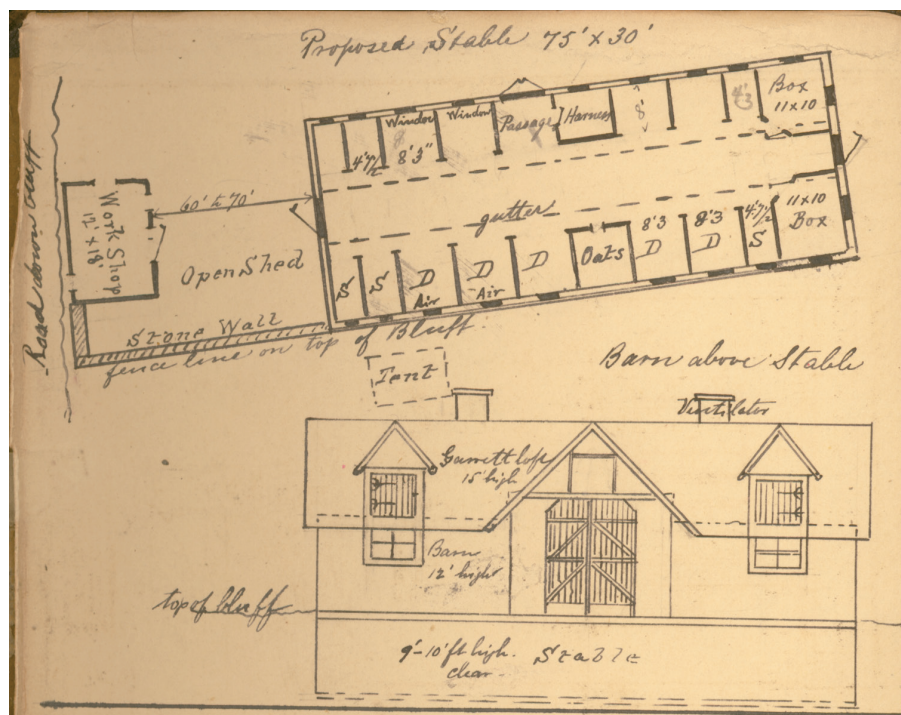 Proposed Stable 75' x 30'
Road down bluff
Work Shop
12' x 18'
60' to 70'
Open Shed
Stone Wall
fence line on top of Bluff.
4'7½
Window
8'3"
Window
Passage
Harness
8'
Box
11 x 10
gutter
S
S
D
Air
D
Air
D
Oats
8'3
D
8'3
D
4'7½
S
11 x 10
Box
Tent
Barn above Stable
Ventilator
Garrett loft
15' high
Barn
12' high
top of bluff
9'-10' ft high.
clear.
Stable